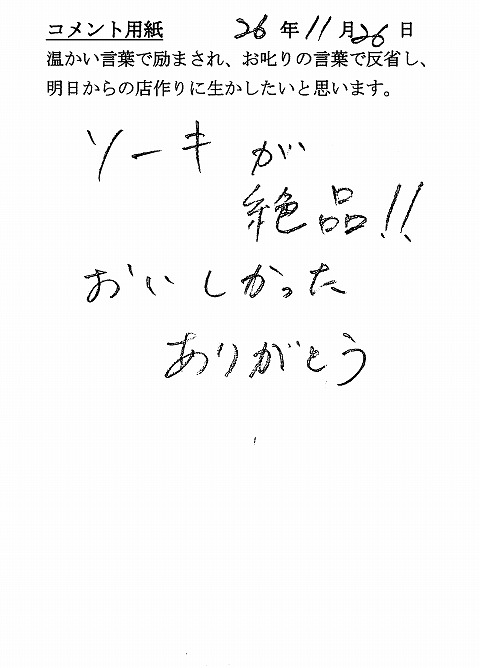 コメント用紙 26年11月26日
温かい言葉で励まされ、お叱りの言葉で反省し、
明日からの店作りに生かしたいと思います。
ソーキが
絶品!!
おいしかった
ありがとう